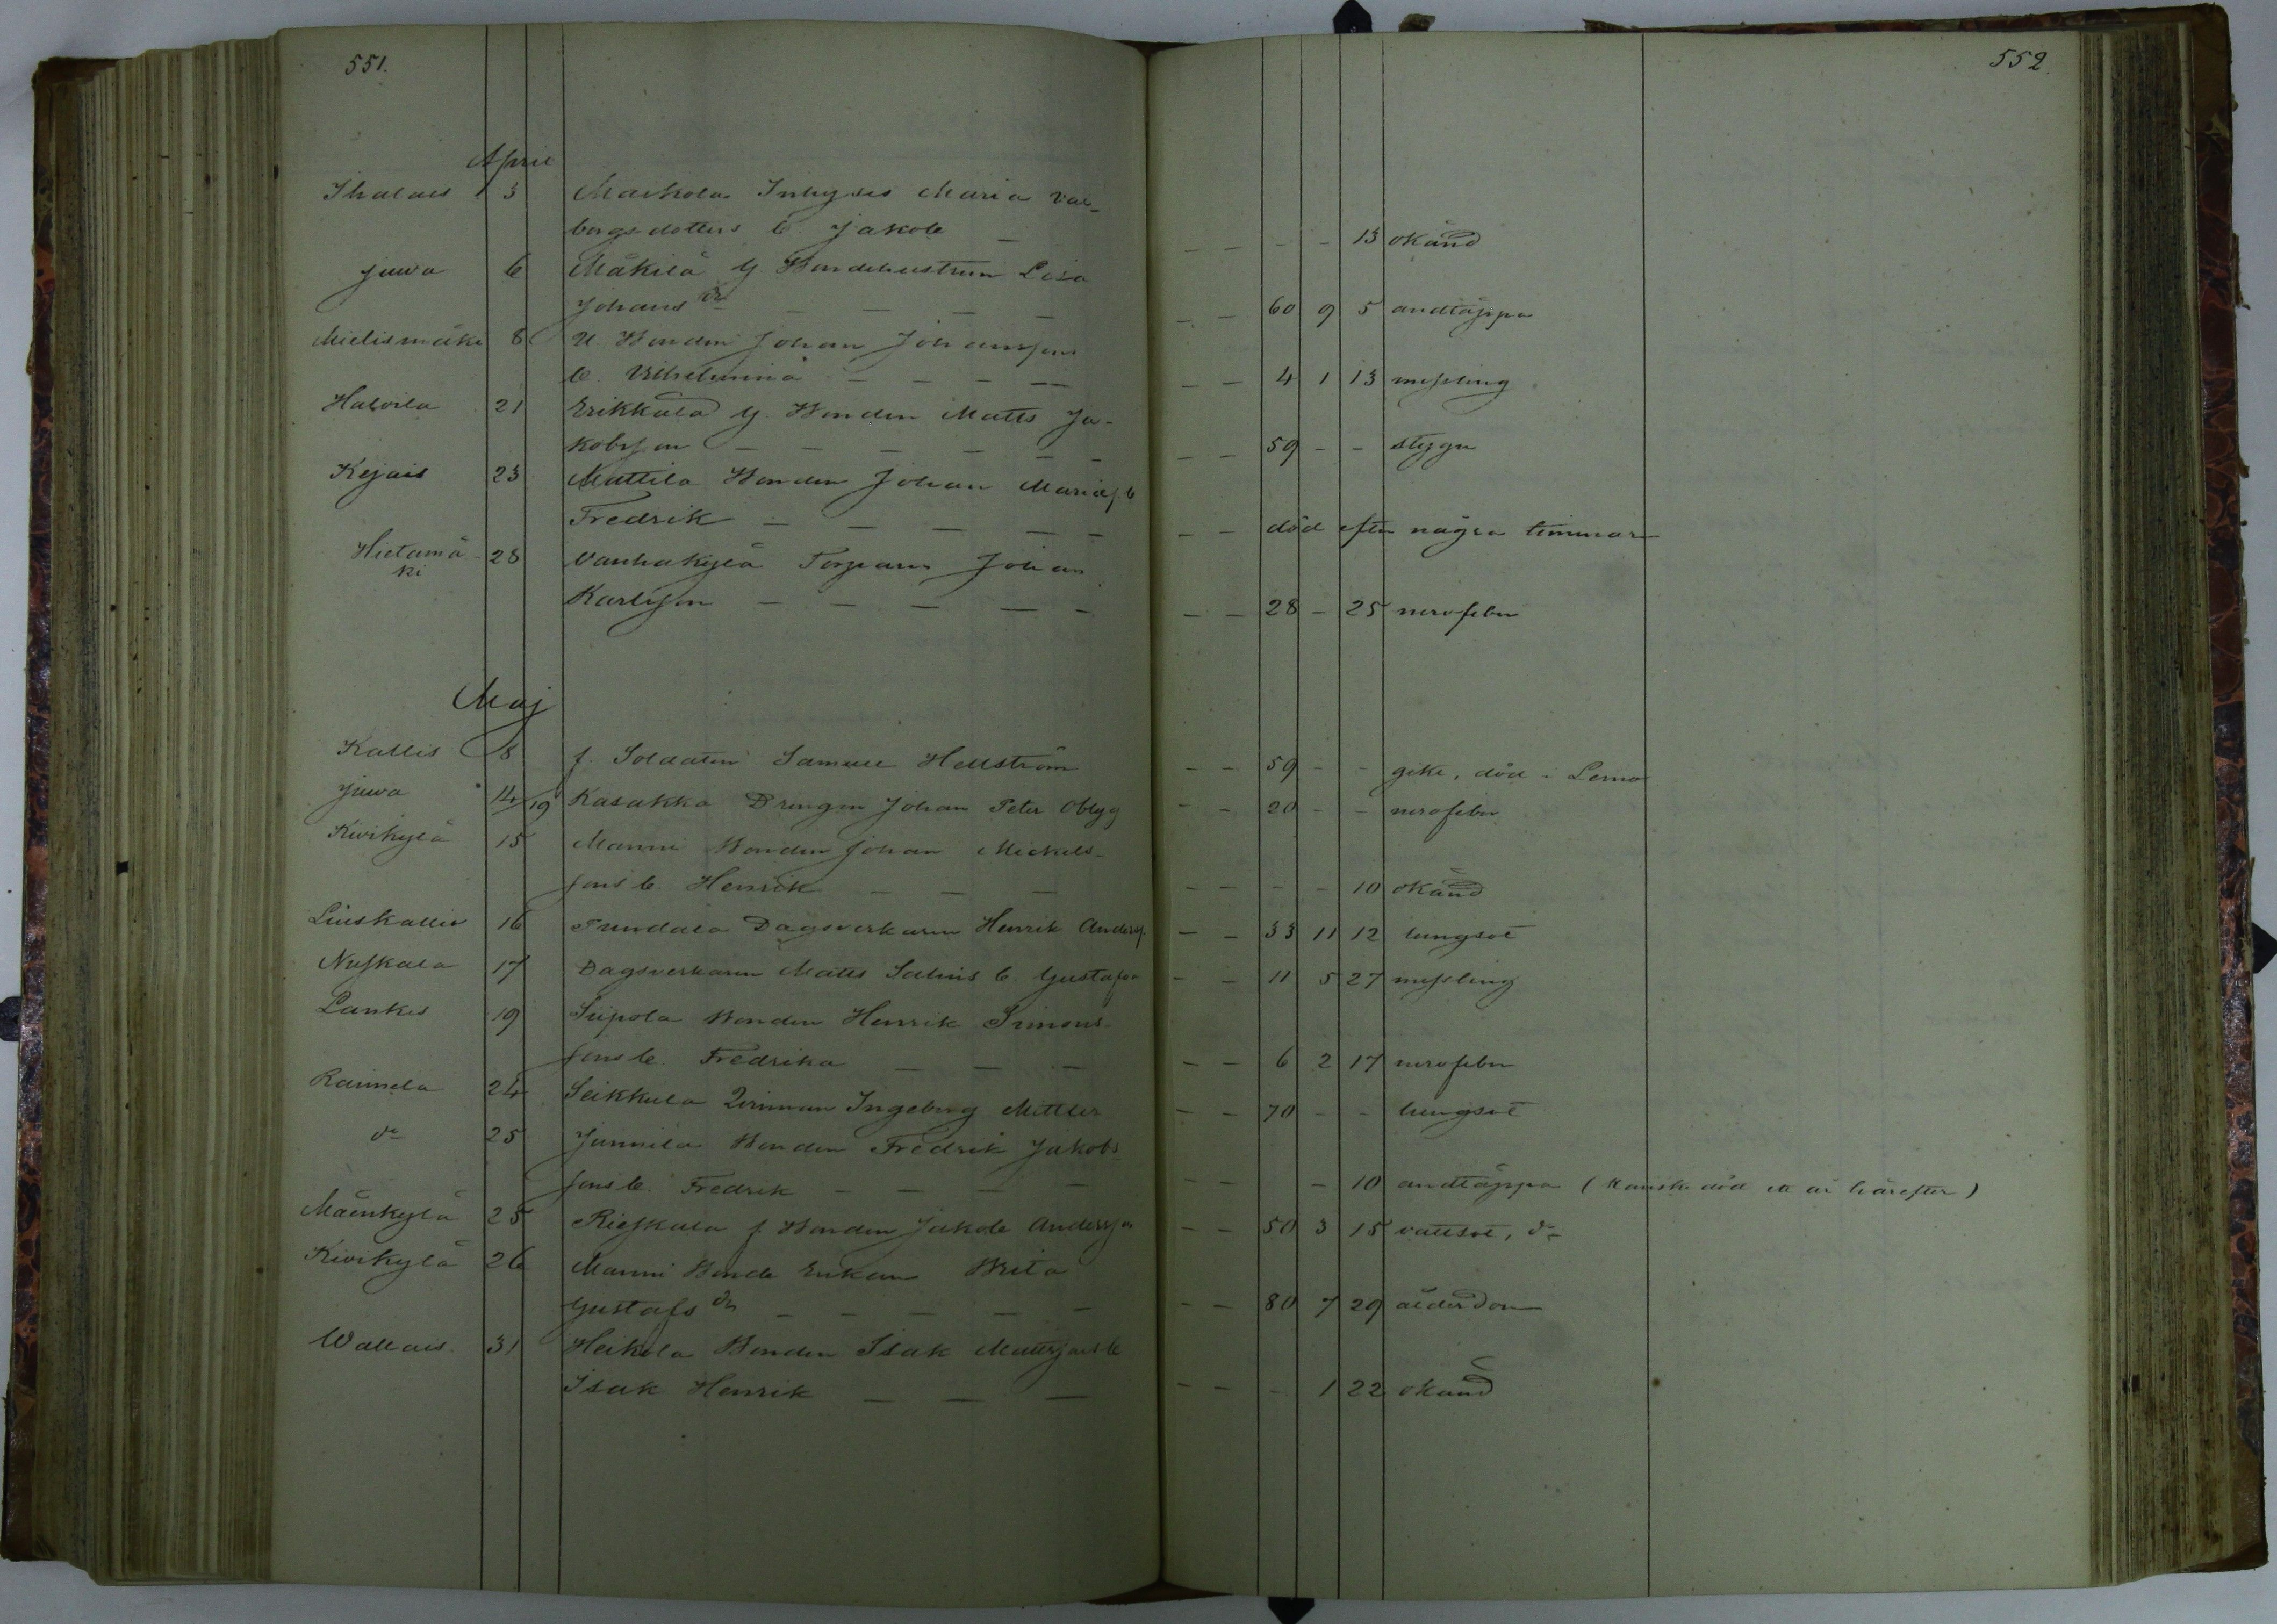 551.
552.
April
Ihalais 3 Maikola Inhyses Maria Val-
borgsdotters b. Jakob — — — — — 13 okänd
Juva 6 Mäkilä G. Bondehustrun Lisa
Johans dr — — — — — — 60 9 5 andtäppa
Mielismäki 8 U. Bonden Johan Johanssons
b. Vilhelmina — — — — — — 4 1 13 messling
Haloila 21 Erikkala G. Bonden Matts Ja-
kobsson — — — — — — — — 59 — — stygn
Kejais 23 Mattila Bonden Johan b.
Fredrik — — — — — — — död efter några timmar
Hietamä-
ki 28 Vanhakylä Torparn Johan
Karlsson — — — — — — — 28 — 25 nervfeber
Maj
Kallis 8 f. Soldaten Samuel Hellström — — 59 — — gikt, död i Lemo
Juva 14/19 Kasakka Drengen Johan Peter — — 20 — — nervfeber
Kivikylä 15 Manni Bonden Johan Mickels-
sons b. Henrik — — — — — — — 10 okänd
Liuskallio 16 Tundala Dagsverkaren Henrik Anderss. — — 33 11 12 lungsot
Nuskala 17 Dagsverkaren Matts Salmis b. Gustafva — — 11 5 27 messling
Lankis 19 Siipola Bonden Henrik Simons-
sons b. Fredrika — — — — — 6 2 17 nervfeber
Raimela 24 Seikkula Qvinnan Ingeborg — — 70 — — lungsot
do 25 Junnila Bonden Fredrik Jakobs-
sons b. Fredrik — — — — — — — 10 andtäppa (kanske död ett år härefter)
Mäenkylä 25 Rieskala f. Bonden Jakob Andersson — — 50 3 15 vattsot, do
Kivikylä 26 Manni Bonde Enkan Brita
Gustafs dr — — — — — — — 80 7 29 ålderdom
Wallais 31 Heikola Bonden Isak Mattssons b.
Isak Henrik — — — — — — 1 22 okänd